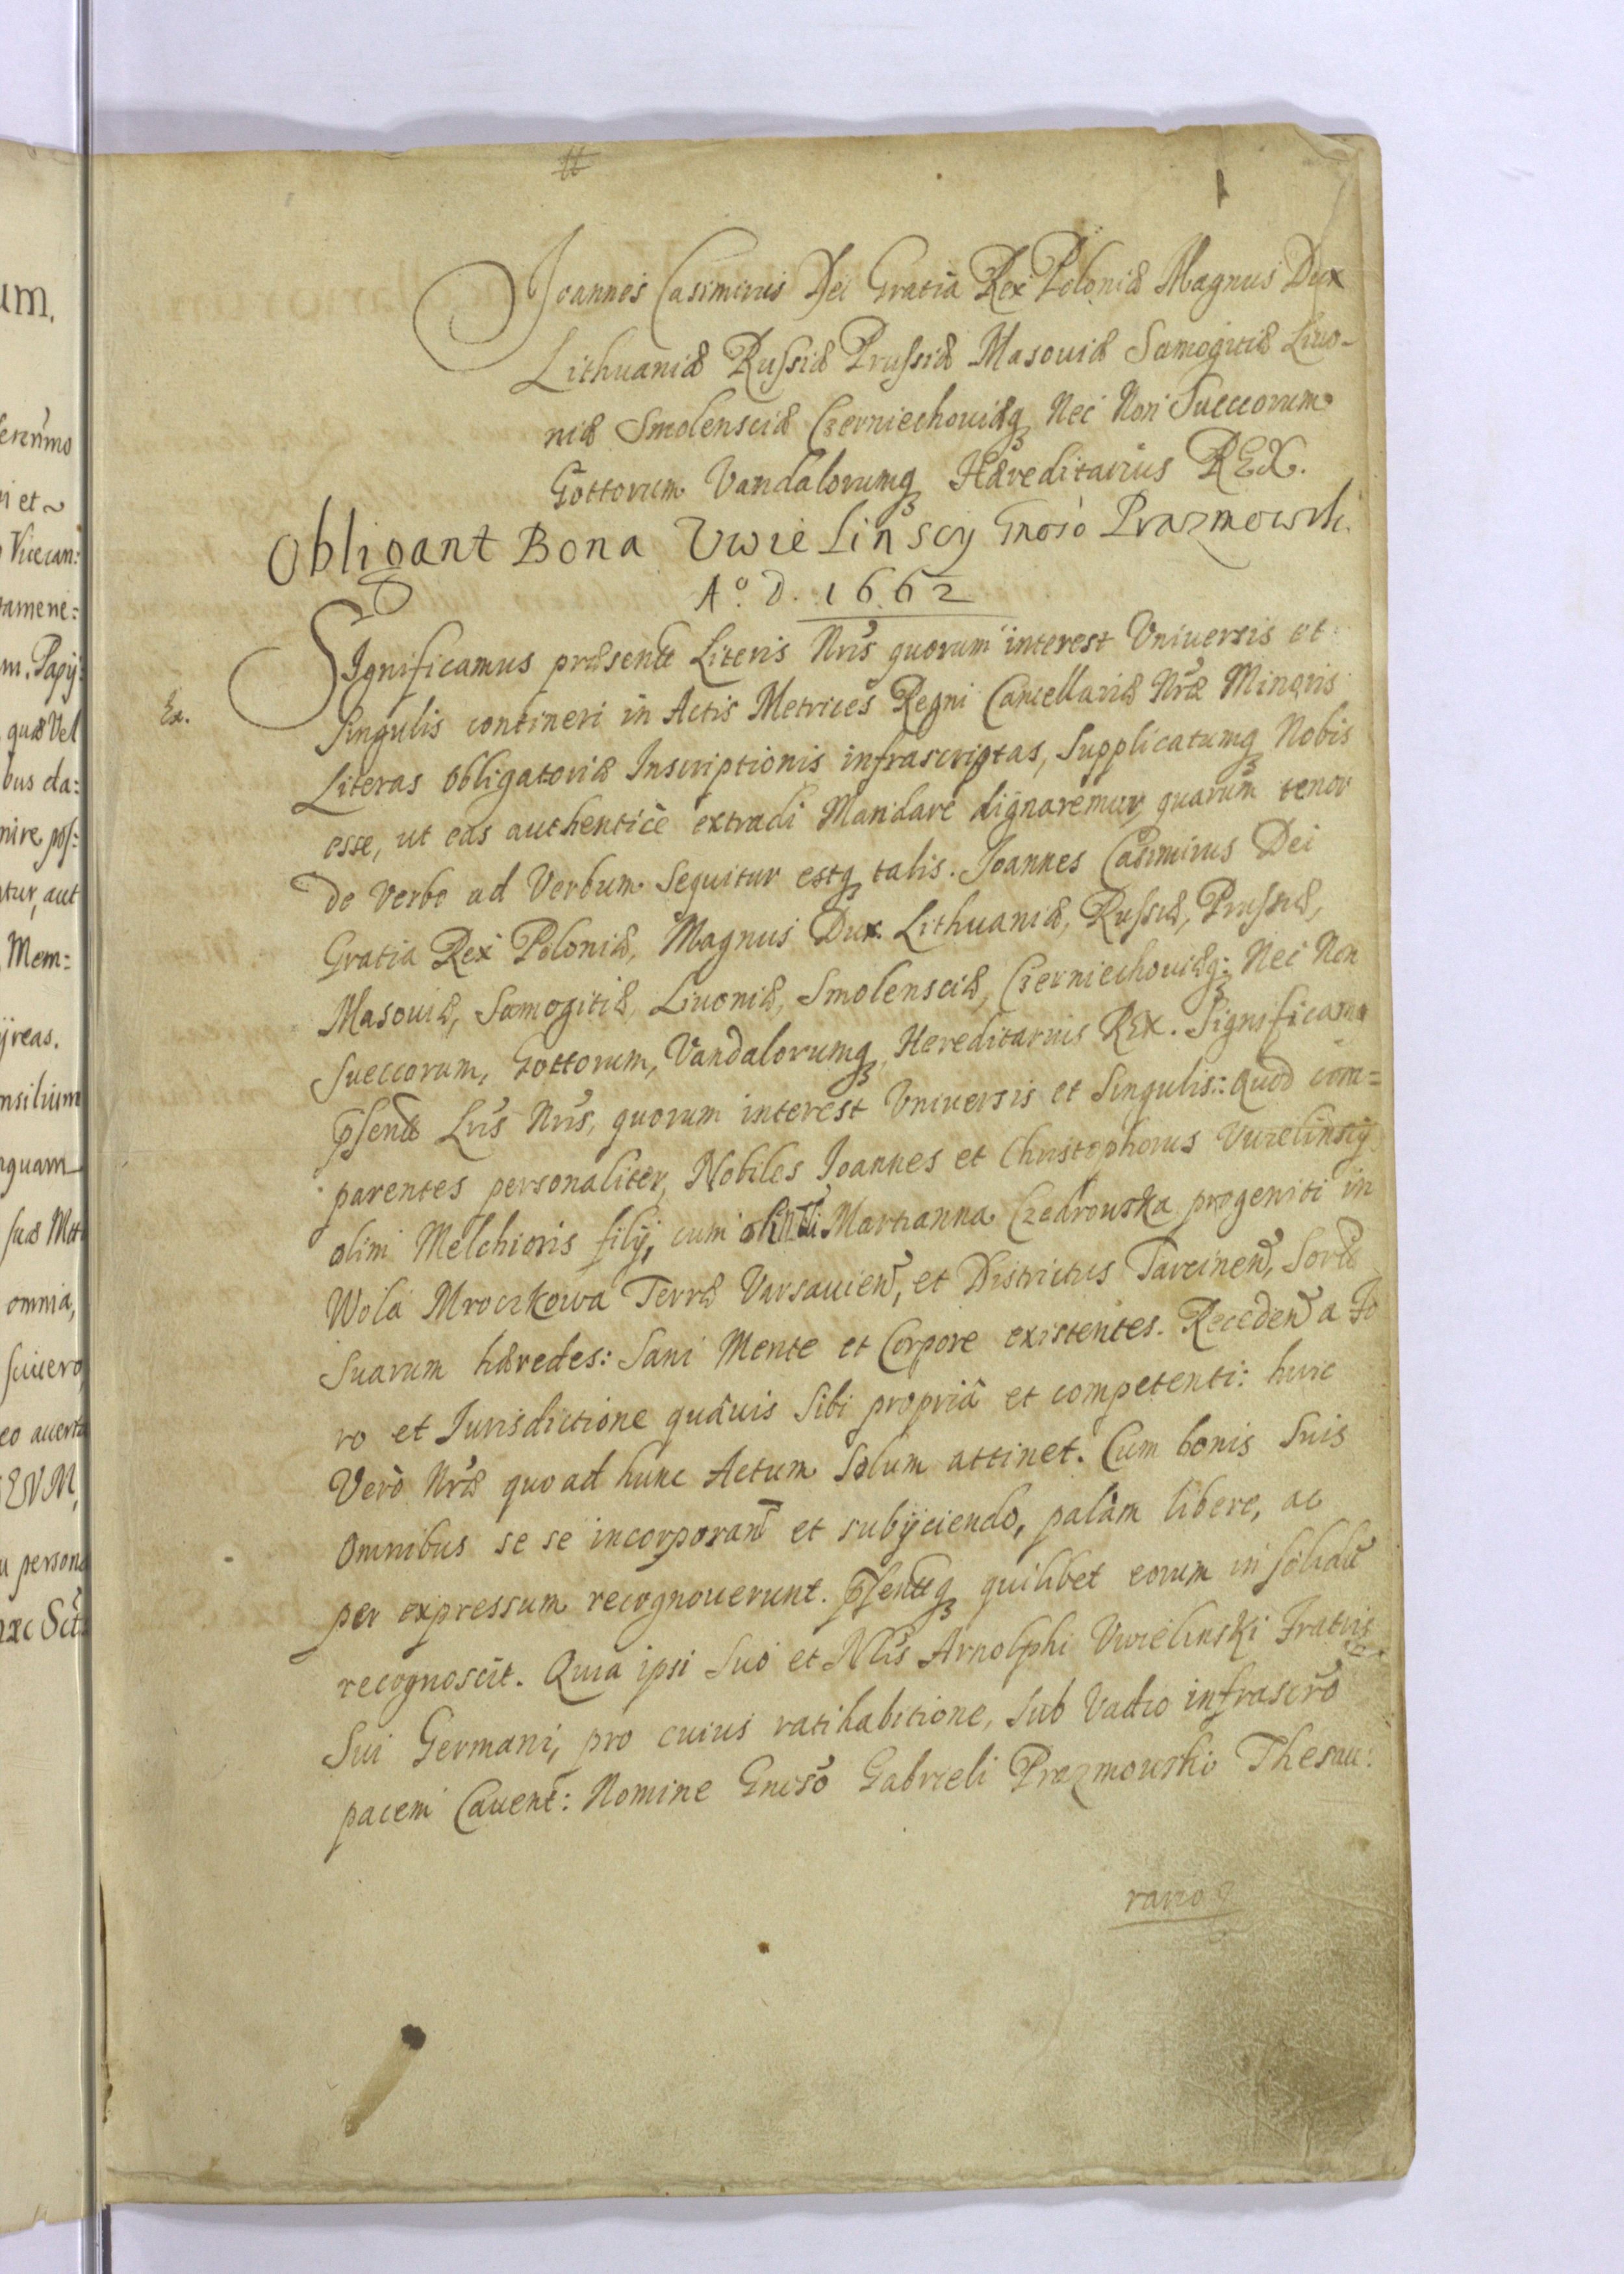 Joannes Casimirus Dei Gratiâ Rex Poloniæ Magnus Dux
Lithuaniæ Russiæ Prussiæ Masouiæ Samogitiæ Liuo-
niæ Smolensciæ Czerniechouiæq Nec Non Sueccorum
Gottorum Vandalorumq Hæreditarius REX.
Obligant Bona Uwielinscy Gnoso Prazmowski
Aº. D. 1662
SIgnificamus præsentt Literis Nris quorum interest Vniuersis et
Ex.
Singulis contineri in Actis Metrices Regni Cancellariæ Nræ Minoris
Literas Obligatoriæ Inscriptionis infrascriptas, Supplicatumq Nobis
esse, ut eas authenticè extradi Mandare dignaremur, quarum tenor
de Verbo ad Verbum Sequitur estq talis. Joannes Casimirus Dei
Gratia Rex Poloniæ, Magnus Dux Lithuaniæ, Russiæ, Prussiæ,
Masouiæ, Samogitiæ, Liuoniæ, Smolensciæ, Czerniechouiæq: Nec Non
Sueccorum, Gottorum, Vandalorumq Hereditarius REX. Significamꝰ
ꝑsentt Lris Nris, quorum interest Vniuersis et Singulis: Quod com=
parentes personaliter, Nobiles Joannes et Christophorus Uwielinscy
olim Melchioris filÿ, cum olim Marianna Czedrowska progeniti in
Wola Mroczkowa Terræ Varsauien, et Districtus Tarcinen, Sort
Suarum hæredes: Sani Mente et Corpore existentes. Receden a Fo
ro et Jurisdictione quâuis Sibi propriâ et competenti: huic
Verò Nræ quo ad hunc Actum Solum attinet. Cum bonis Suis
Omnibus se se incorporan et subÿciendo, palàm libere, ac
per expressum recognouerunt. ꝑsenttq quilibet eorum in solidũ
recognoscit. Quia ipsi Suo et Nlis Arnolphi Uwielinski Fratris
Sui Germani, pro cuius ratihabitione, Sub Vadio infrascro
pacem Cauent: Nomine Gnoso Gabrieli Prazmowski Thesau:
rario